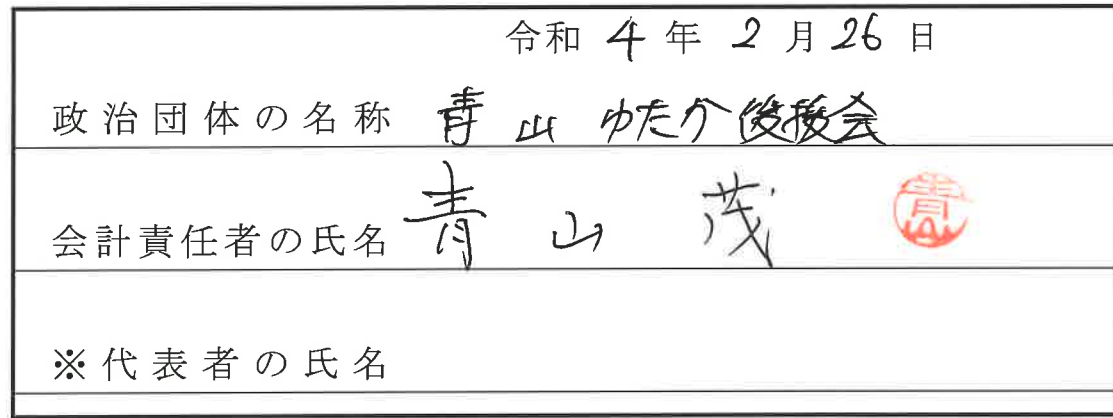 令和 4 年 2 月 26 日
政治団体の名称 青山ゆたか後援会
会計責任者の氏名 青山 茂 青山
※代表者の氏名